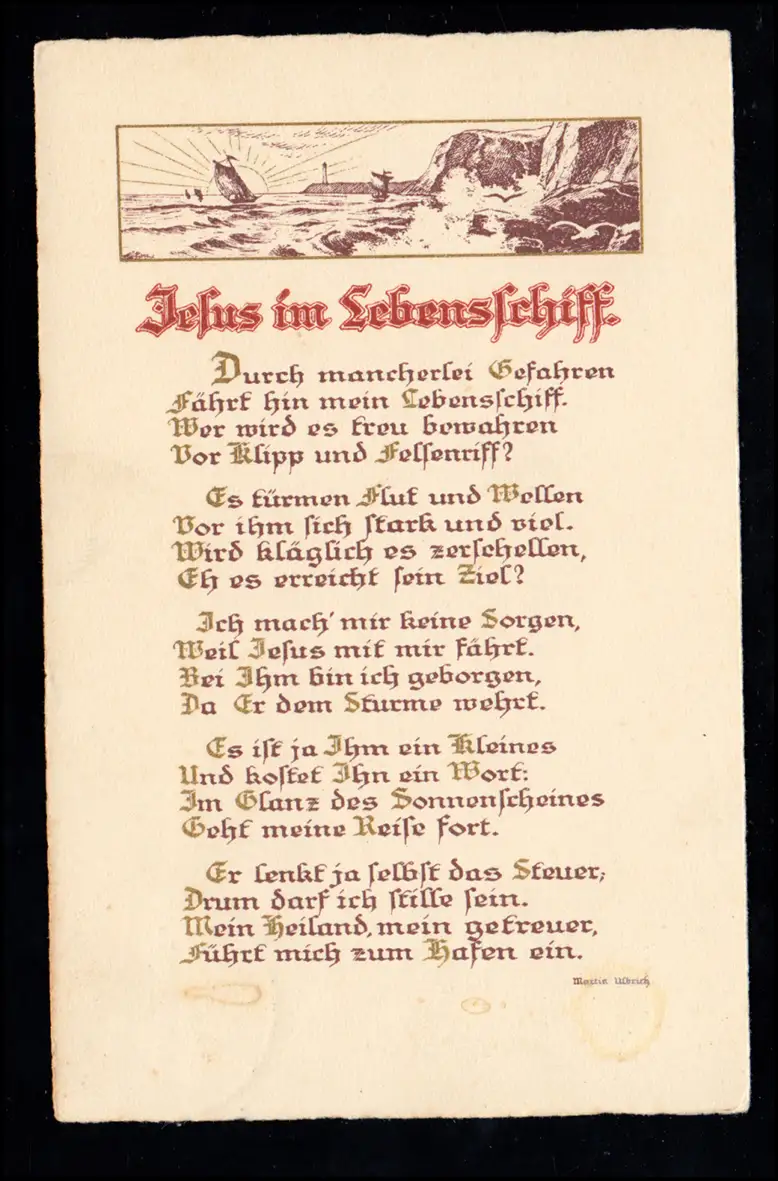 Jesus im Lebensschiff.
Durch mancherlei Gefahren
Fährt hin mein Lebensschiff.
Wer wird es treu bewahren
Vor Klipp und Felsenriff?
Es türmen Flut und Wellen
Vor ihm sich stark und viel.
Wird kläglich es zerschellen,
Eh es erreicht sein Ziel?
Ich mach' mir keine Sorgen,
Weil Jesus mit mir fährt.
Bei Ihm bin ich geborgen,
Da Er dem Sturme wehrt.
Es ist ja Ihm ein Kleines
Und kostet Ihn ein Wort:
Im Glanz des Sonnenscheines
Geht meine Reise fort.
Er lenkt ja selbst das Steuer;
Drum darf ich stille sein.
Mein Heiland, mein getreuer,
Führt mich zum Hafen ein.
Martin Ulbrich